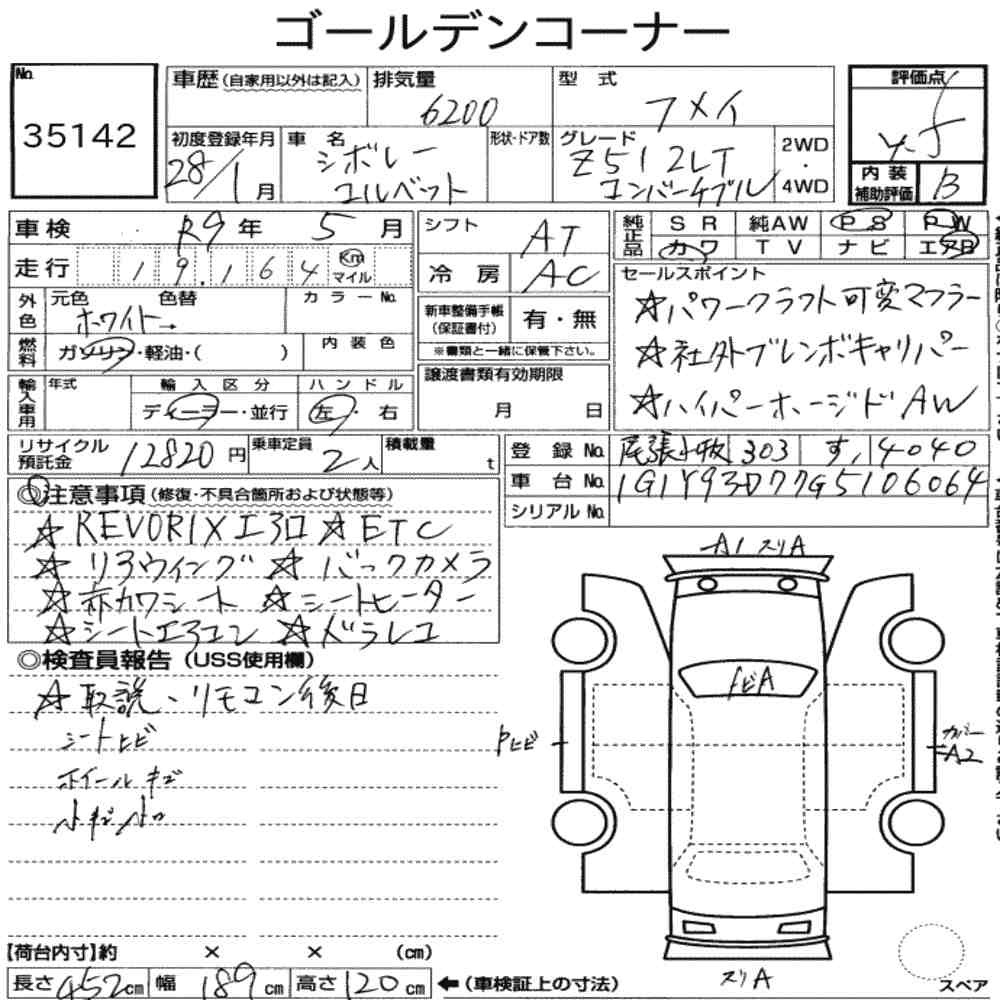 ゴールデンコーナー
No. 35142
車歴 (自家用以外は記入)
排気量 6200
型式 フメイ
評価点 4.5
初度登録年月 28/1月
車名 シボレー コルベット
形状・ドア数
グレード Z51 2LT コンバーチブル
2WD・4WD
内装補助評価 B
車検 R9年 5月
シフト AT
純正品 SR 純AW PS PW
カワ TV ナビ エアB
走行 19.164 Km マイル
冷房 AC
セールスポイント
☆パワークラフト可変マフラー
☆社外ブレンボキャリパー
☆ハイパーホージドAW
外色 元色 色替 ホワイト→
カラーNo.
新車整備手帳(保証書付) 有・無
※書類と一緒に保管下さい。
燃料 ガソリン・軽油・( )
内装色
輸入車用 年式 輸入区分 ハンドル
ディーラー・並行 左・右
譲渡書類有効期限
月 日
リサイクル預託金 12820円
乗車定員 2人
積載量 t
登録No. 尾張小牧 303 す 4040
車台No. 1G1Y93D77G5106064
シリアルNo.
◎注意事項 (修復・不具合箇所および状態等)
☆REVORIXエアロ ☆ETC
☆リアウィング ☆バックカメラ
☆赤カワシート ☆シートヒーター
☆シートエアコン ☆ドラレコ
◎検査員報告 (USS使用欄)
☆取説、リモコン後日
シートヒビ
ホイールキズ
小キズ小凹
A1 スリA
トビA
Pヒビ
カバーA2
スリA
スペア
【荷台内寸】約 × × (cm)
長さ 452cm 幅 189cm 高さ 120cm ←(車検証上の寸法)